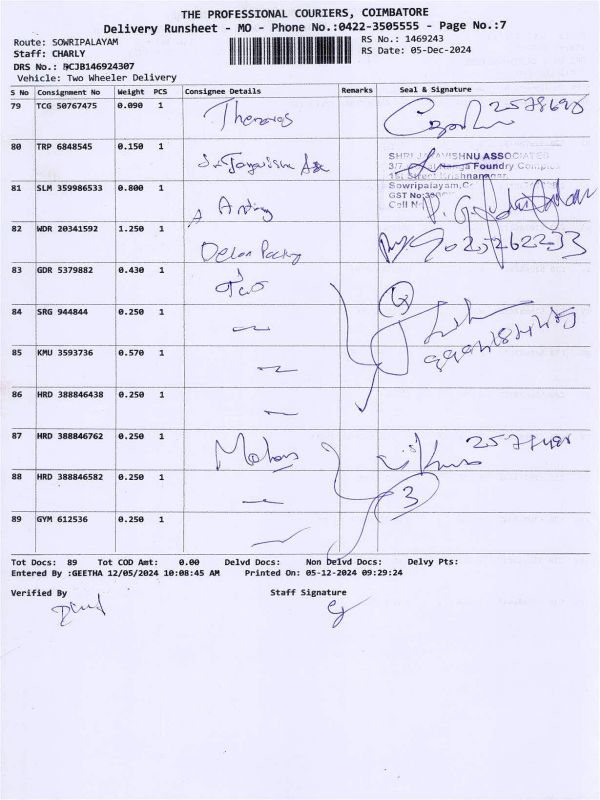 THE PROFESSIONAL COURIERS, COIMBATORE
Delivery Runsheet - MO - Phone No.:0422-3505555 - Page No.:7
Route: SOWRIPALAYAM RS No.: 1469243
Staff: CHARLY RS Date: 05-Dec-2024
DRS No.: BCJB146924307
Vehicle: Two Wheeler Delivery
S No Consignment No Weight PCS Consignee Details Remarks Seal & Signature
79 TCG 50767475 0.090 1
80 TRP 6848545 0.150 1
SHRI JAYAVISHNU ASSOCIATES
3/7 Foundry
1st Street Krishnanagar,
81 SLM 359986533 0.800 1 Sowripalayam,
GST No:
Cell
82 WDR 20341592 1.250 1 Delon Packing 9025262233
83 GDR 5379882 0.430 1
84 SRG 944844 0.250 1
85 KMU 3593736 0.570 1
86 HRD 388846438 0.250 1
87 HRD 388846762 0.250 1 Mohan
88 HRD 388846582 0.250 1 3
89 GYM 612536 0.250 1
Tot Docs: 89 Tot COD Amt: 0.00 Delvd Docs: Non Delvd Docs: Delvy Pts:
Entered By :GEETHA 12/05/2024 10:08:45 AM Printed On: 05-12-2024 09:29:24
Verified By Staff Signature